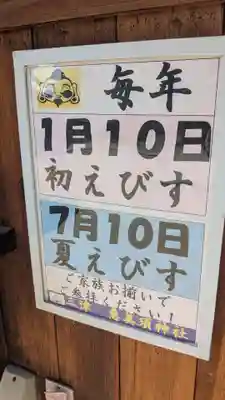 毎年
1月10日
初えびす
7月10日
夏えびす
ご家族お揃いで
ご参拝ください!
津 恵美須神社